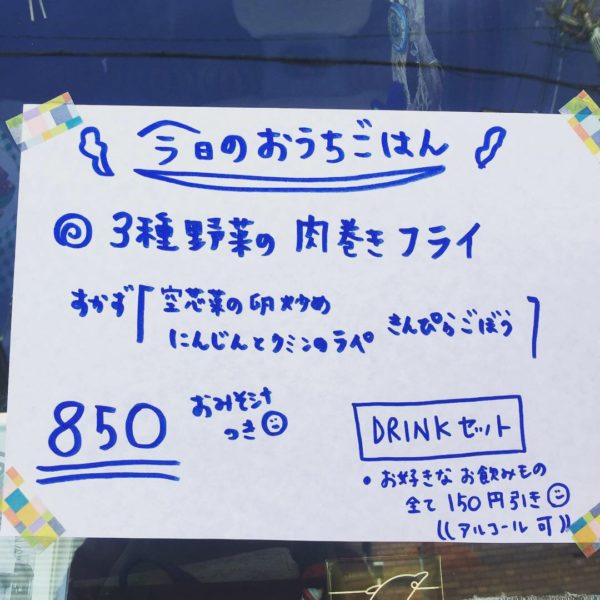 今日のおうちごはん
◎ 3種野菜の肉巻きフライ
おかず「空芯菜の卵炒め
にんじんとクミンのラペ きんぴらごぼう」
850 おみそ汁
つき
DRINKセット
・お好きなお飲みもの
全て150円引き
((アルコール可))